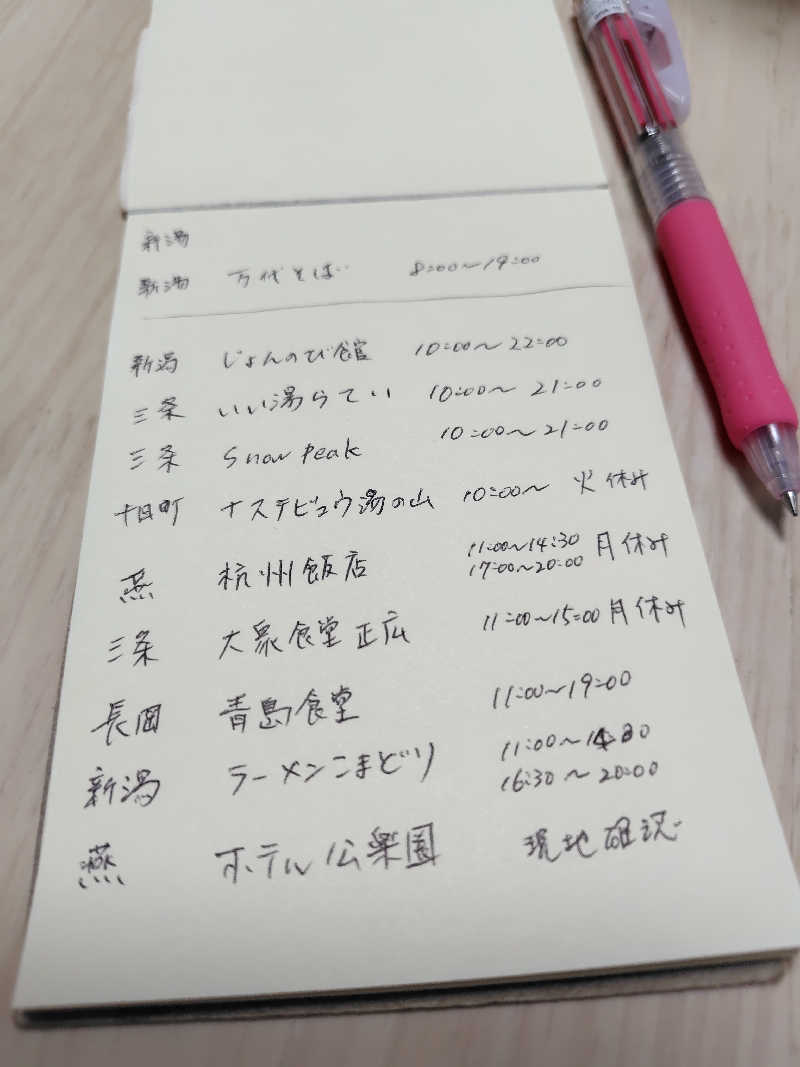 新潟
新潟 万代そば 8:00〜19:00
新潟 じょんのび館 10:00〜22:00
三条 いい湯らてい 10:00〜21:00
三条 Snow Peak 10:00〜21:00
十日町 ナステビュウ湯の山 10:00〜 火休み
燕 杭州飯店 11:00〜14:30 月休み
17:00〜20:00
三条 大衆食堂正広 11:00〜15:00 月休み
長岡 青島食堂 11:00〜19:00
新潟 ラーメンこまどり 11:00〜14:30
16:30〜20:00
燕 ホテル公楽園 現地確認